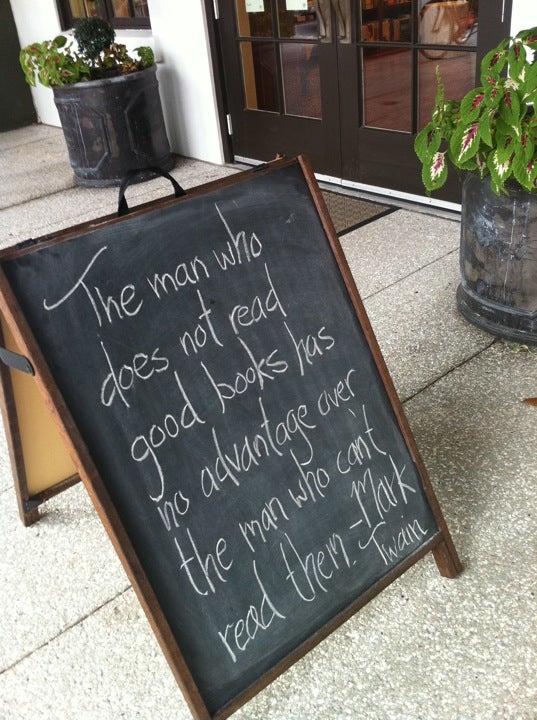 The man who
does not read
good books has
no advantage over
the man who can't
read them. -Mark
Twain